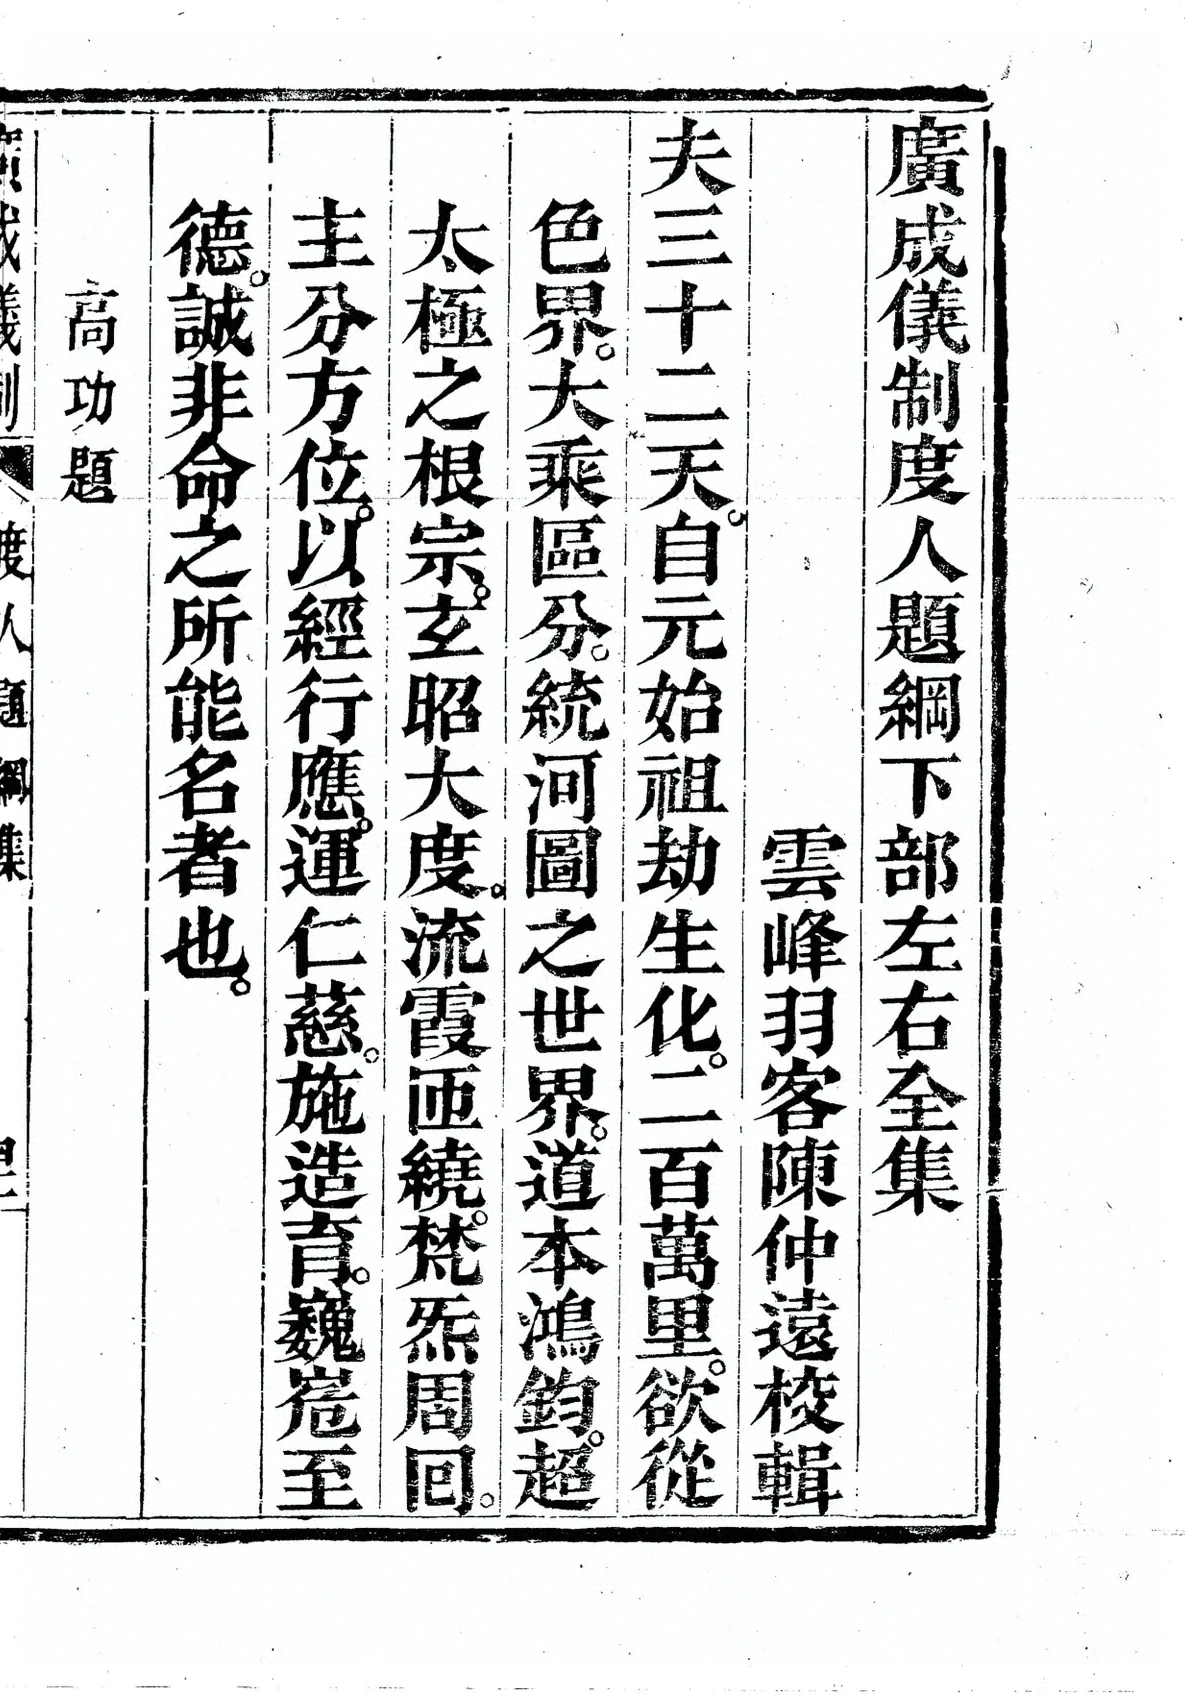 廣成儀制度人題綱下部左右全集
雲峰羽客陳仲遠校輯
夫三十二天。自元始祖劫生化。二百萬里。欲從
色界。大乘區分。統河圖之世界。道本鴻鈞。超
太極之根宗。玄昭大度。流霞匝繞。梵炁周囘。
主分方位。以經行應。運仁慈。施造育。巍峞至
德。誠非命之所能名者也。
高功題
廣成儀制 度人題綱集